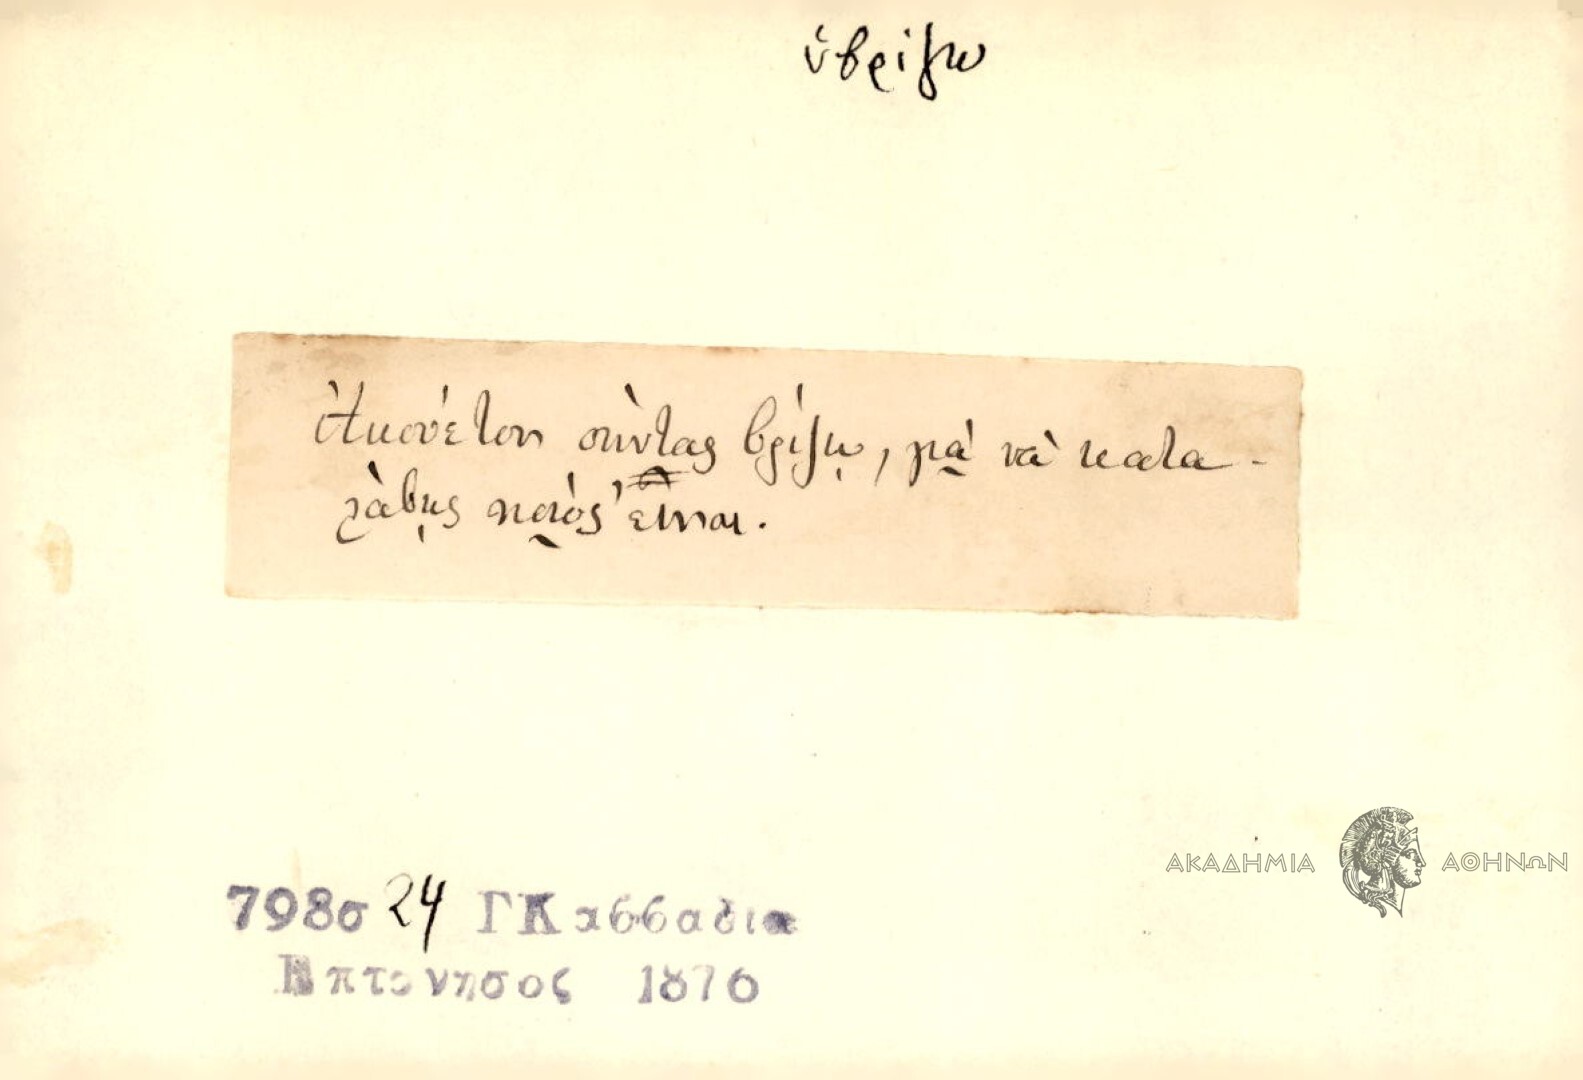 ὑβρίζω
Ἀκούετον σὺντας βρίζῃ, μὰ νὰ κατα-
λάβῃς ποιὸς εἶναι.
798σ 24 ΓΚασσαδια
Επτονησος 1876
ΑΚΑΔΗΜΙΑ ΑΘΗΝΩΝ